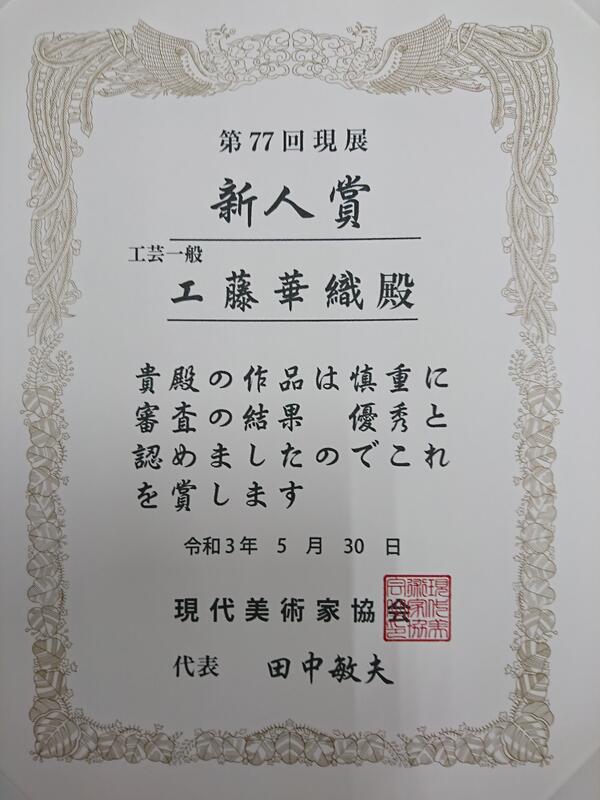 第77回現展
新人賞
工芸一般
工藤華織殿
貴殿の作品は慎重に
審査の結果　優秀と
認めましたのでこれ
を賞します
令和3年 5 月 30 日
現代美術家協会
代表 田中敏夫